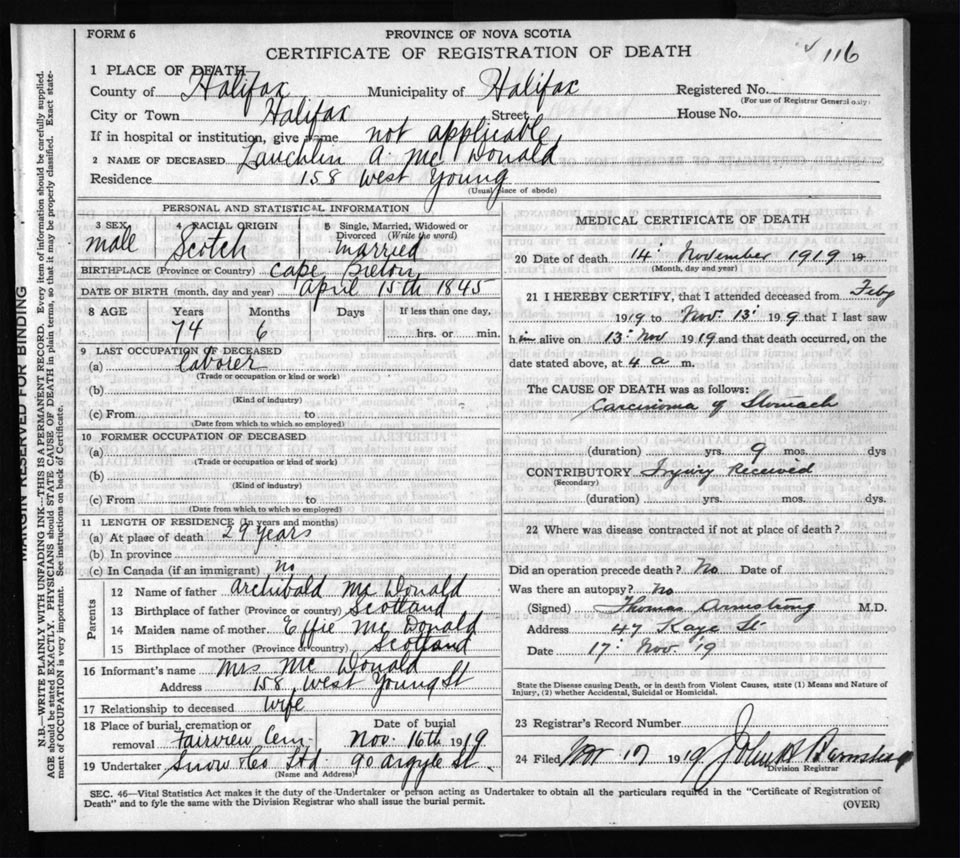 FORM 6
PROVINCE OF NOVA SCOTIA
CERTIFICATE OF REGISTRATION OF DEATH
116
1 PLACE OF DEATH
County of Halifax Municipality of Halifax Registered No.
(For use of Registrar General only)
City or Town Halifax Street House No.
If in hospital or institution, give name not applicable
2 NAME OF DECEASED Lauchlin A. McDonald
Residence 158 West Young
(Usual place of abode)
PERSONAL AND STATISTICAL INFORMATION
3 SEX 4 RACIAL ORIGIN 5 Single, Married, Widowed or Divorced (Write the word)
male Scotch married
BIRTHPLACE (Province or Country) Cape Breton
DATE OF BIRTH (month, day and year) april 15th 1845
8 AGE Years Months Days If less than one day,
74 6 hrs. or min.
9 LAST OCCUPATION OF DECEASED
(a) laborer
(Trade or occupation or kind or work)
(b)
(Kind of industry)
(c) From to
(Date from which to which so employed)
10 FORMER OCCUPATION OF DECEASED
(a)
(Trade or occupation or kind of work)
(b)
(Kind of industry)
(c) From to
(Date from which to which so employed)
11 LENGTH OF RESIDENCE (In years and months)
(a) At place of death 29 years
(b) In province
(c) In Canada (if an immigrant) no
Parents
12 Name of father Archibald McDonald
13 Birthplace of father (Province or country) Scotland
14 Maiden name of mother Effie McDonald
15 Birthplace of mother (Province or country) Scotland
16 Informant's name Mrs McDonald
Address 158 West Young St
17 Relationship to deceased Wife
18 Place of burial, cremation or removal Fairview Cem. Date of burial Nov. 16th 1919
19 Undertaker Snow & Co Ltd. 90 Argyle St.
(Name and Address)
MEDICAL CERTIFICATE OF DEATH
20 Date of death 14 November 1919 19
(Month, day and year)
21 I HEREBY CERTIFY, that I attended deceased from Feby
1919 to Nov. 13 1919 that I last saw
him alive on 13 Nov 1919 and that death occurred, on the
date stated above, at 4 a m.
The CAUSE OF DEATH was as follows:
Carcinoma of Stomach
(duration) yrs. 9 mos. dys
CONTRIBUTORY Injury Received
(Secondary)
(duration) yrs. mos. dys.
22 Where was disease contracted if not at place of death?
Did an operation precede death? No Date of
Was there an autopsy? No
(Signed) Thomas Armstrong M.D.
Address 47 Kaye St
Date 17 Nov. 19
State the Disease causing Death, or in death from Violent Causes, state (1) Means and Nature of
Injury, (2) whether Accidental, Suicidal or Homicidal.
23 Registrar's Record Number
24 Filed Nov 17 1919 John A Barnstead
Division Registrar
SEC. 46—Vital Statistics Act makes it the duty of the Undertaker or person acting as Undertaker to obtain all the particulars required in the "Certificate of Registration of
Death" and to fyle the same with the Division Registrar who shall issue the burial permit.
(OVER)
MARGIN RESERVED FOR BINDING
N.B.—WRITE PLAINLY WITH UNFADING INK—THIS IS A PERMANENT RECORD. Every item of information should be carefully supplied.
AGE should be stated EXACTLY. PHYSICIANS should STATE CAUSE OF DEATH in plain terms, so that it may be properly classified. Exact state-
ment of OCCUPATION is very important. See instructions on back of Certificate.